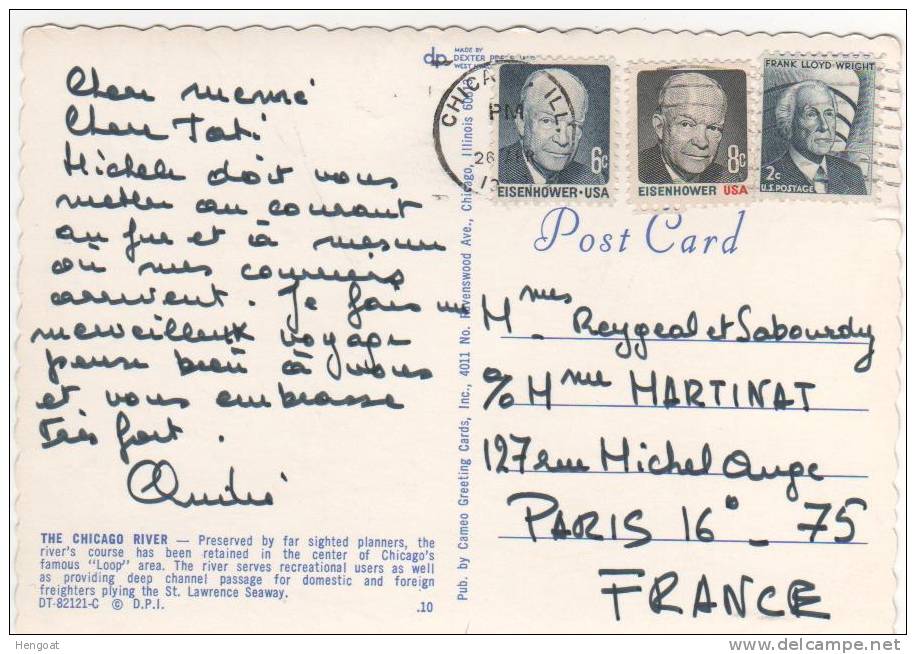 Chère mémé
Chère Tati
Michèle doit vous
mettre au courant
au fur et à mesure
où mes courriers
arrivent. Je fais un
merveilleux voyage
pense bien à vous
et vous embrasse
très fort.
THE CHICAGO RIVER — Preserved by far sighted planners, the
river's course has been retained in the center of Chicago's
famous "Loop" area. The river serves recreational users as well
as providing deep channel passage for domestic and foreign
freighters plying the St. Lawrence Seaway.
DT-82121-C © D.P.I. .10
Pub. by Cameo Greeting Cards, Inc., 4011 No. Ravenswood Ave., Chicago, Illinois
dp MADE BY
DEXTER
WEST
CHICAGO, ILL.
PM
26
6c
EISENHOWER·USA
8c
EISENHOWER USA
FRANK LLOYD WRIGHT
2c
U.S. POSTAGE
Post Card
Mmes Reygeal et Sabourdy
c/o Mme MARTINAT
127 rue Michel Ange
PARIS 16° _ 75
FRANCE
Hengoat
www.delcampe.net